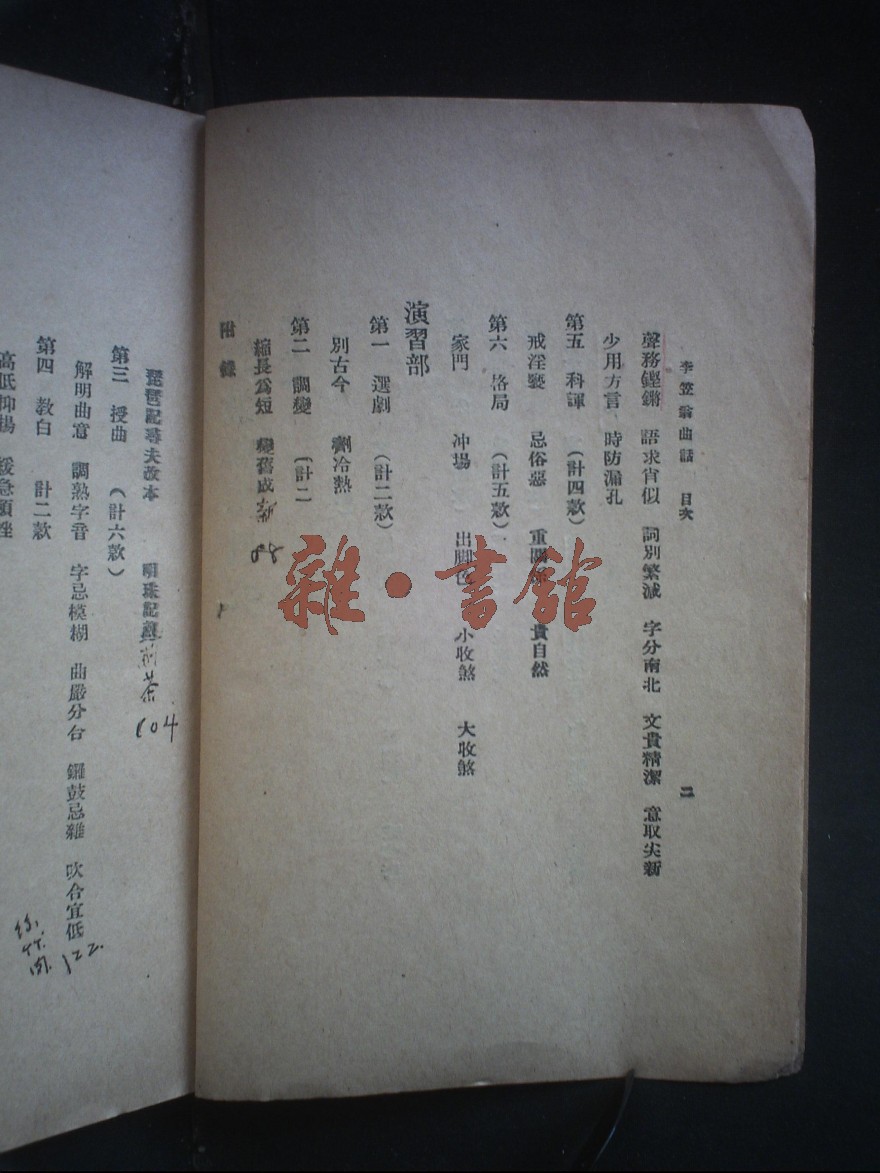 李笠翁曲話 目次 二
聲務鏗鏘 語求肖似 詞別繁減 字分南北 文貴精潔 意取尖新
少用方言 時防漏孔
第五 科諢 (計四款)
戒淫褻 忌俗惡 重關係 貴自然
第六 格局 (計五款)
家門 冲場 出脚色 小收煞 大收煞
演習部
第一 選劇 (計二款)
別古今 劑冷熱
第二 調變 (計二
縮長爲短 變舊成新
附錄
琵琶記尋夫改本 明珠記煎茶 104
第三 授曲 (計六款)
解明曲意 調熟字音 字忌模糊 曲嚴分合 鑼鼓忌雜 吹合宜低 122.
第四 教白 計二款
高低抑揚 緩急頓挫
雜·書館